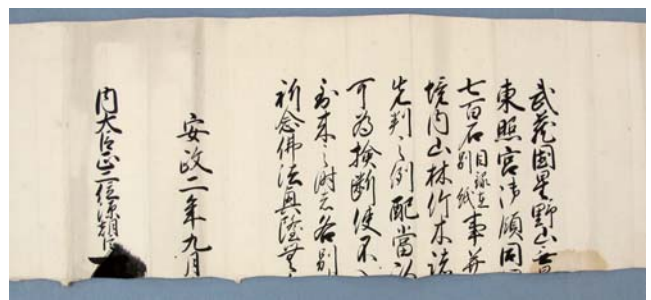 武蔵国星野山無
東照宮御領同
七百石目録在別紙事并
境内山林竹木諸
先判之例配當以
可為検断使不
到来之附志各別
祈念佛法興隆
安政二年九月
内大臣正二位源朝臣